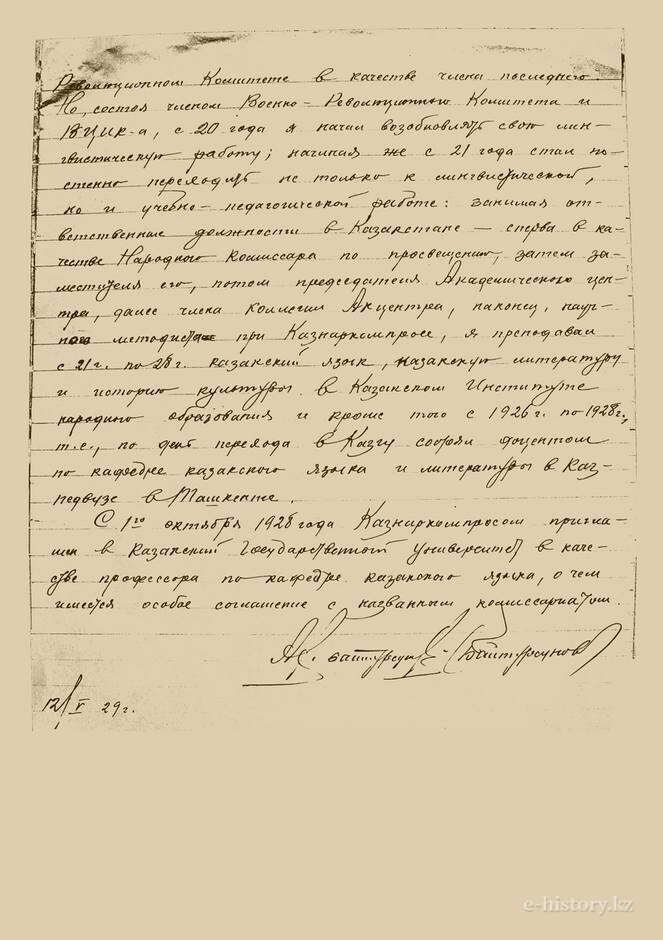 Революционном Комитете в качестве члена последнего.
Но, состоя членом Военно-Революционного Комитета и
ВЦИК-а, с 20 года я начал возобновлять свою лин-
гвистическую работу; начиная же с 21 года стал по-
степенно переходить не только к лингвистической,
но и учебно-педагогической работе: занимая от-
ветственные должности в Казакстане — сперва в ка-
честве Народного Комиссара по просвещению, затем за-
местителя его, потом председателя Академического цен-
тра, далее члена коллегии Акцентра, наконец, науч-
ного методиста при Казнаркомпросе, я преподавал
с 21 г. по 28 г. казакский язык, казакскую литературу
и историю культуры в Казакском Институте
народного образования и кроме того с 1926 г. по 1928 г.,
т.е., по день перехода в Казгу состоял доцентом
по кафедре казакского языка и литературы в Каз-
педвузе в Ташкенте.
С 1го октября 1928 года Казнаркомпросом пригла-
шен в Казакский Государственной Университет в каче-
стве профессора по кафедре казакского языка, о чем
имеется особое соглашение с названным комиссариатом.
(Байтурсунов)
12/V 29 г.
e-history.kz